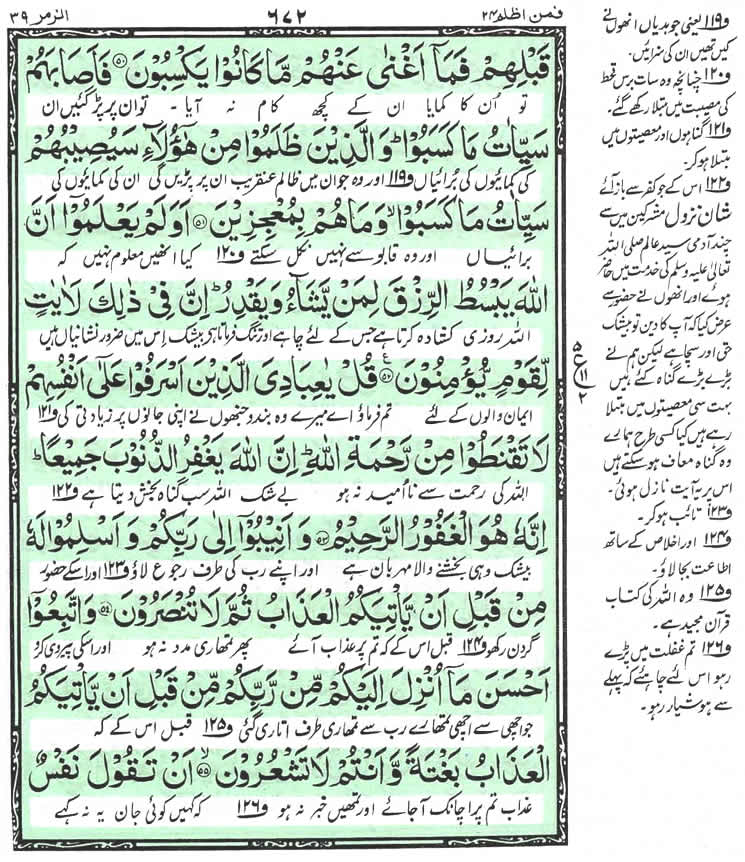 فمن اظلم ۲۴
۶۷۲
الزمر ۳۹
قَبْلِهِمْ فَمَآ اَغْنٰى عَنْهُمْ مَّا كَانُوْا يَكْسِبُوْنَ ۝۵۰ فَاَصَابَهُمْ
تو اُن کا کمایا ان کے کچھ کام نہ آیا ۔ تو ان پر پڑ گئیں ان
سَيِّاٰتُ مَا كَسَبُوْا ؕ وَالَّذِيْنَ ظَلَمُوْا مِنْ هٰٓؤُلَآءِ سَيُصِيْبُهُمْ
کی کمائیوں کی برائیاں و۱۱۹ اور وہ جو ان میں ظالم عنقریب ان پر پڑیں گی ان کی کمائیوں کی
سَيِّاٰتُ مَا كَسَبُوْا ۙ وَمَا هُمْ بِمُعْجِزِيْنَ ۝۵۱ اَوَلَمْ يَعْلَمُوْٓا اَنَّ
برائیاں اور وہ قابو سے نہیں نکل سکتے و۱۲۰ کیا انھیں معلوم نہیں کہ
اللّٰهَ يَبْسُطُ الرِّزْقَ لِمَنْ يَّشَآءُ وَيَقْدِرُ ؕ اِنَّ فِيْ ذٰلِكَ لَاٰيٰتٍ
اللہ روزی کشادہ کرتا ہے جس کے لئے چاہے اور تنگ فرماتا ہے بیشک اس میں ضرور نشانیاں ہیں
لِّقَوْمٍ يُّؤْمِنُوْنَ ۝۵۲ قُلْ يٰعِبَادِيَ الَّذِيْنَ اَسْرَفُوْا عَلٰٓى اَنْفُسِهِمْ
ایمان والوں کے لئے تم فرماؤ اے میرے وہ بندو جنھوں نے اپنی جانوں پر زیادتی کی و۱۲۱
لَا تَقْنَطُوْا مِنْ رَّحْمَةِ اللّٰهِ ؕ اِنَّ اللّٰهَ يَغْفِرُ الذُّنُوْبَ جَمِيْعًا ؕ
اللہ کی رحمت سے ناامید نہ ہو بے شک اللہ سب گناہ بخش دیتا ہے و۱۲۲
اِنَّهٗ هُوَ الْغَفُوْرُ الرَّحِيْمُ ۝۵۳ وَ اَنِيْبُوْٓا اِلٰى رَبِّكُمْ وَ اَسْلِمُوْا لَهٗ
بیشک وہی بخشنے والا مہربان ہے اور اپنے رب کی طرف رجوع لاؤ و۱۲۳ اور اسکے حضور
مِنْ قَبْلِ اَنْ يَّاْتِيَكُمُ الْعَذَابُ ثُمَّ لَا تُنْصَرُوْنَ ۝۵۴ وَاتَّبِعُوْٓا
گردن رکھو و۱۲۴ قبل اس کے کہ تم پر عذاب آئے پھر تمھاری مدد نہ ہو اور اسکی پیروی کرو
اَحْسَنَ مَآ اُنْزِلَ اِلَيْكُمْ مِّنْ رَّبِّكُمْ مِّنْ قَبْلِ اَنْ يَّاْتِيَكُمُ
جو اچھی سے اچھی تمھارے رب سے تمھاری طرف اتاری گئی و۱۲۵ قبل اس کے کہ
الْعَذَابُ بَغْتَةً وَّاَنْتُمْ لَا تَشْعُرُوْنَ ۝۵۵ اَنْ تَقُوْلَ نَفْسٌ
عذاب تم پر اچانک آ جائے اور تمھیں خبر نہ ہو و۱۲۶ کہ کہیں کوئی جان یہ نہ کہے
ع ۵ ۱۱ ۲
و۱۱۹ یعنی جو بدیاں انھوں نے
کیں تھیں ان کی سزائیں۔
و۱۲۰ چنانچہ وہ سات برس قحط
کی مصیبت میں مبتلا رکھے گئے۔
و۱۲۱ گناہوں اور معصیتوں میں
مبتلا ہو کر۔
و۱۲۲ اس کے جو کفر سے باز آئے
شان نزول مشرکین میں سے
چند آدمی سید عالم صلی اللہ
تعالیٰ علیہ وسلم کی خدمت میں حاضر
ہوئے اور انھوں نے حضور سے
عرض کیا کہ آپ کا دین تو بیشک
حق اور سچا ہے لیکن ہم نے
بڑے بڑے گناہ کئے ہیں
بہت سی معصیتوں میں مبتلا
رہے ہیں کیا کسی طرح ہمارے
وہ گناہ معاف ہو سکتے ہیں
اس پر یہ آیت نازل ہوئی۔
و۱۲۳ تائب ہو کر۔
و۱۲۴ اور اخلاص کے ساتھ
اطاعت بجا لاؤ۔
و۱۲۵ وہ اللہ کی کتاب
قرآن مجید ہے۔
و۱۲۶ تم غفلت میں پڑے
رہو اس لئے چاہئے کہ پہلے
سے ہوشیار رہو۔